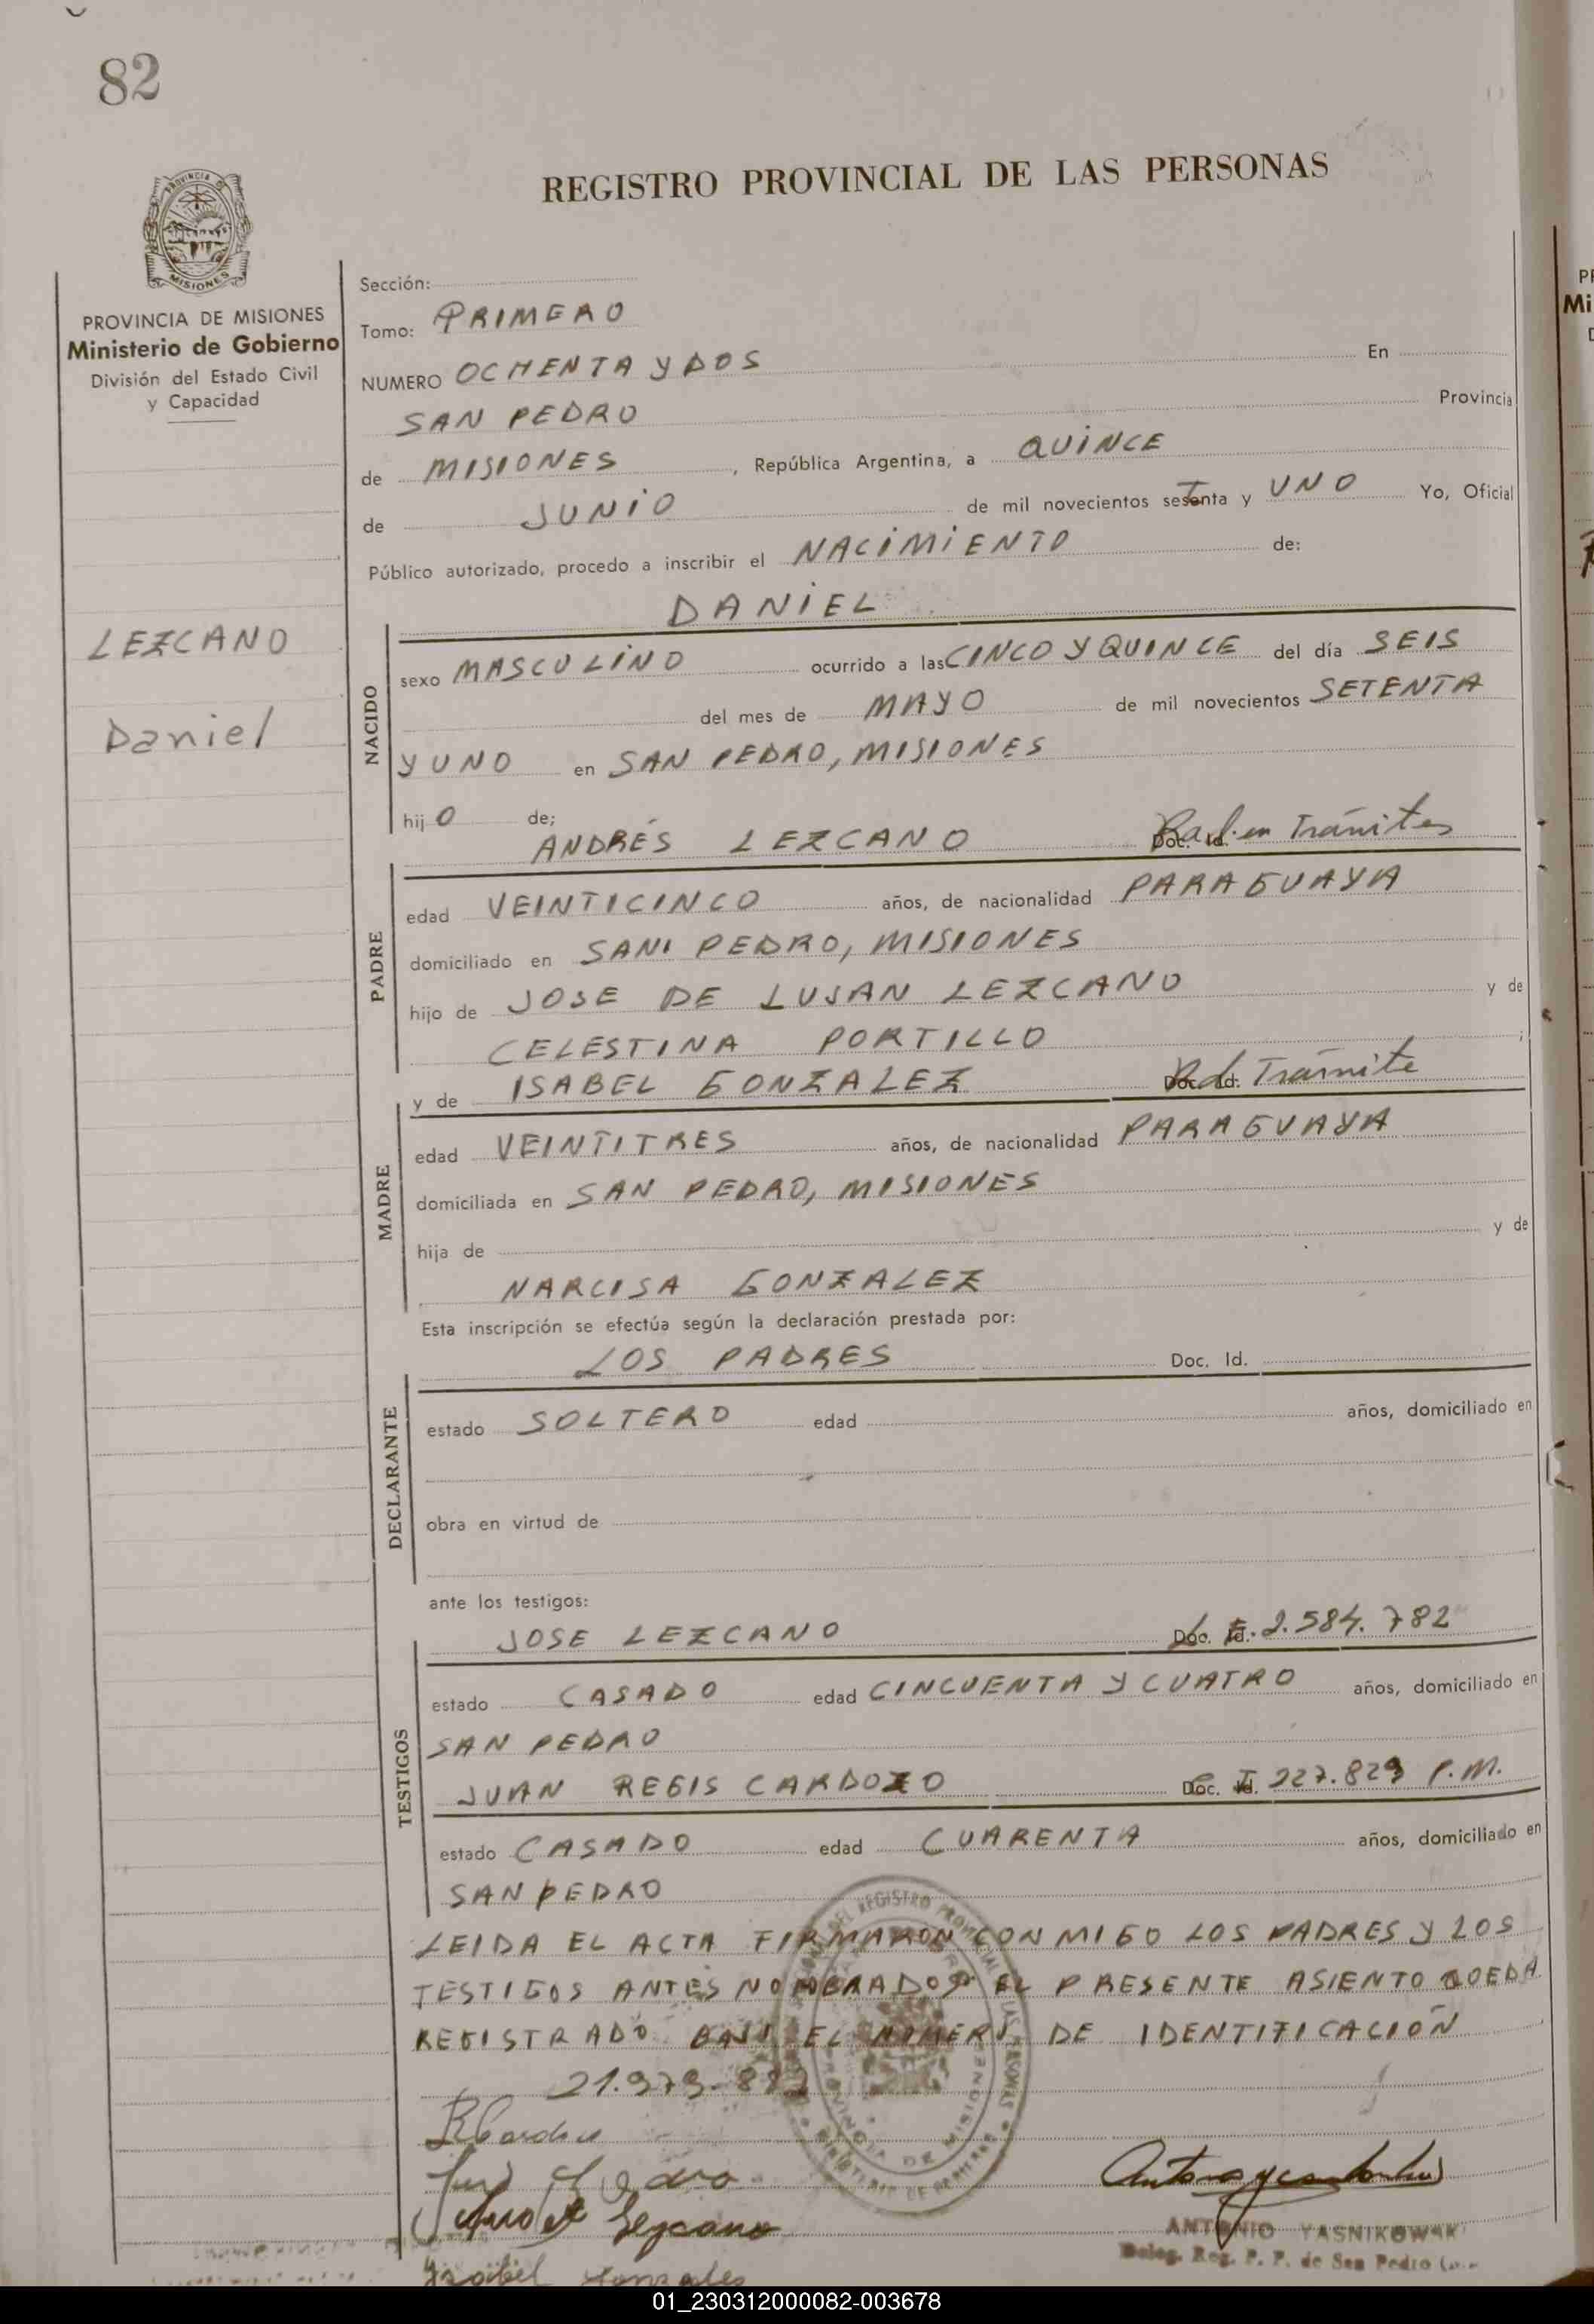 82
REGISTRO PROVINCIAL DE LAS PERSONAS
PROVINCIA DE MISIONES
PROVINCIA DE MISIONES
Ministerio de Gobierno
División del Estado Civil
y Capacidad
LEZCANO
Daniel
Sección:
Tomo: PRIMERO
NUMERO OCHENTA Y DOS En
SAN PEDRO Provincia
de MISIONES, República Argentina, a QUINCE
de JUNIO de mil novecientos setenta y UNO Yo, Oficial
Público autorizado, procedo a inscribir el NACIMIENTO de:
DANIEL
NACIDO
sexo MASCULINO ocurrido a las CINCO Y QUINCE del día SEIS
del mes de MAYO de mil novecientos SETENTA
Y UNO en SAN PEDRO, MISIONES
hijO de;
ANDRÉS LEZCANO Doc. Id. en Trámites
PADRE
edad VEINTICINCO años, de nacionalidad PARAGUAYA
domiciliado en SAN PEDRO, MISIONES
hijo de JOSE DE LUJAN LEZCANO y de
CELESTINA PORTILLO ;
y de ISABEL GONZALEZ Doc. Id. Trámite
MADRE
edad VEINTITRES años, de nacionalidad PARAGUAYA
domiciliada en SAN PEDRO, MISIONES
hija de y de
NARCISA GONZALEZ
Esta inscripción se efectúa según la declaración prestada por:
LOS PADRES Doc. Id.
DECLARANTE
estado SOLTERO edad años, domiciliado en
obra en virtud de
ante los testigos:
JOSE LEZCANO Doc. Id. 2.584.782
TESTIGOS
estado CASADO edad CINCUENTA Y CUATRO años, domiciliado en
SAN PEDRO
JUAN REGIS CARDOZO Doc. Id. 227.829 P.M.
estado CASADO edad CUARENTA años, domiciliado en
SAN PEDRO
LEIDA EL ACTA FIRMARON CONMIGO LOS PADRES Y LOS
TESTIGOS ANTES NOMBRADOS EL PRESENTE ASIENTO QUEDA
REGISTRADO BAJO EL NUMERO DE IDENTIFICACIÓN
21.979.
Lezcano
Isabel Gonzales
ANTONIO YASNIKOWSKI
Deleg. Reg. P. P. de San Pedro
PROVINCIA DE MISIONES
01_230312000082-003678